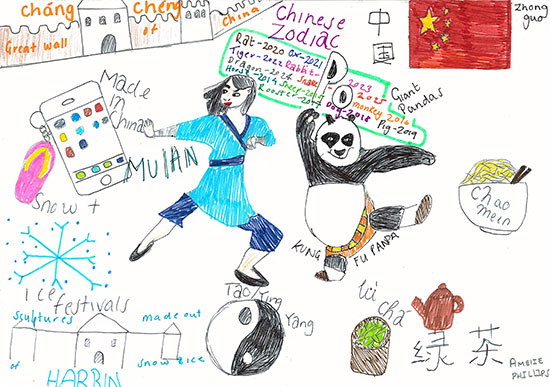 cháng Chéng
Great wall of China
Chinese
Zodiac
Rat-2020 Ox-2021
Tiger-2022 Rabbit-2023
Dragon-2024 Snake-2025
Horse-2014 Sheep-
monkey 2016
Rooster-
Dog-2018
Pig-2019
中国
zhong
guo
Giant
Pandas
Made
in
China
MULAN
Chao
mein
Snow +
Ice festivals
KUNG FU PANDA
sculptures made out
of snow & ice
HARBIN
Tao Ying
Yang
Lü
cha
绿 茶
AMELIE
PHILLIPS